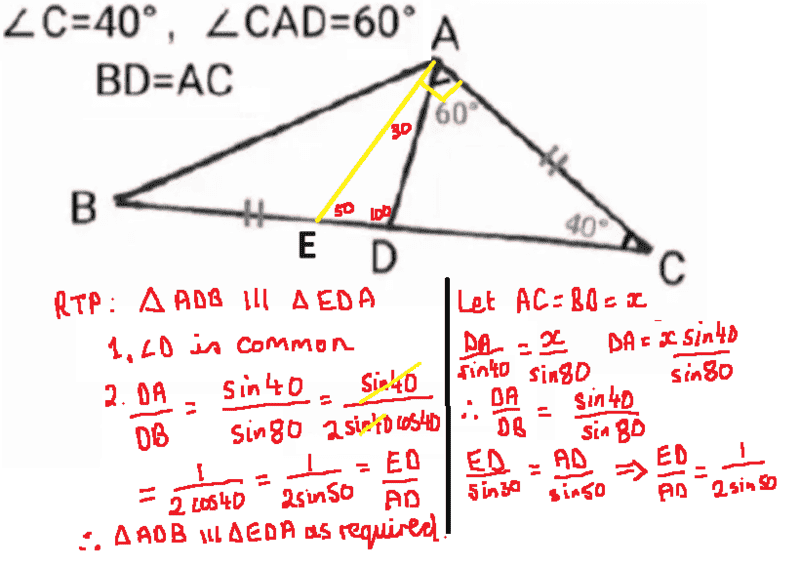 ∠C=40°, ∠CAD=60°
BD=AC
A
60°
30
B
50 100
40°
E
D
C
RTP: △ADB ||| △EDA
1. ∠D is common
2. DA/DB = sin40/sin80 = sin40/2sin40cos40
= 1/2cos40 = 1/2sin50 = ED/AD
∴ △ADB ||| △EDA as required.
Let AC=BD=x
DA/sin40 = x/sin80 DA = x sin40/sin80
∴ DA/DB = sin40/sin80
ED/sin30 = AD/sin50 ⇒ ED/AD = 1/2sin50